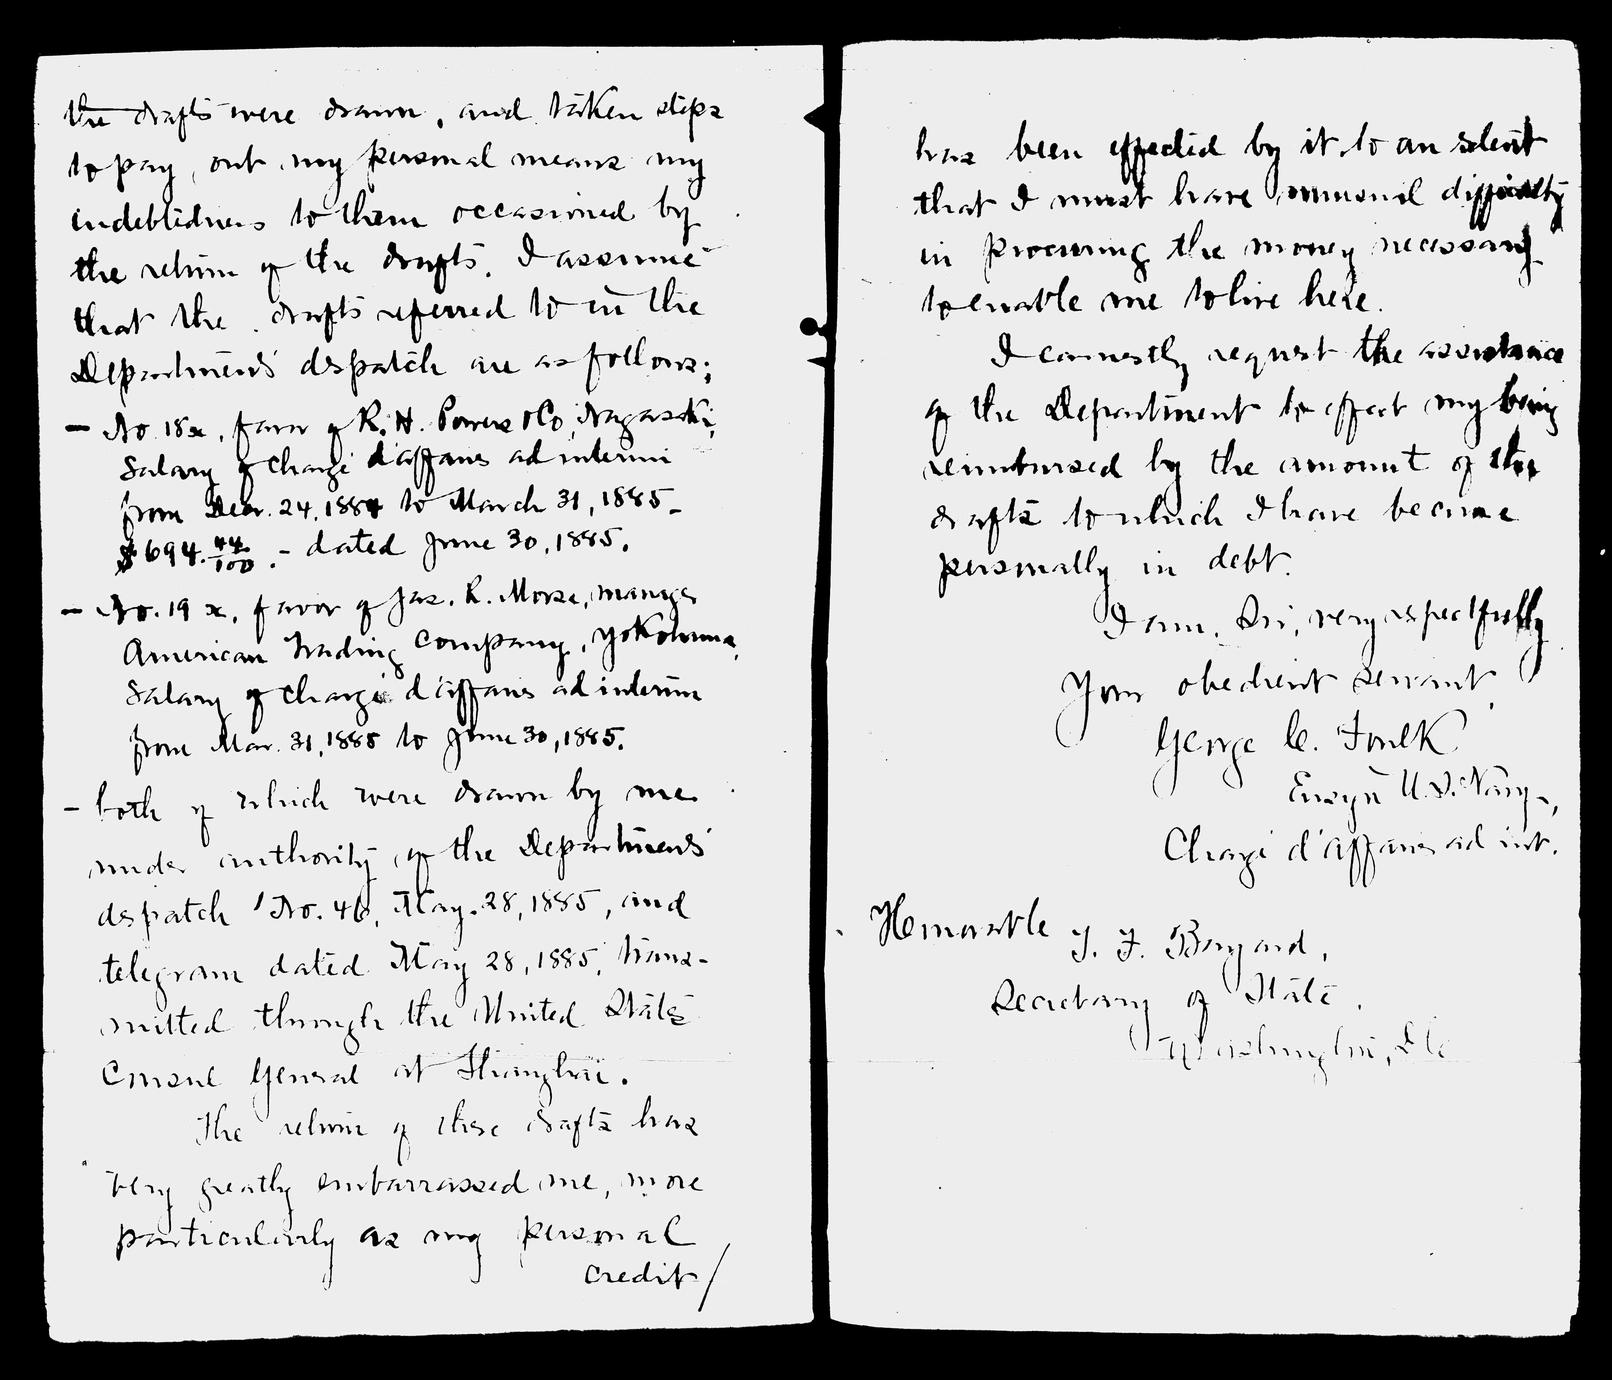 the drafts were drawn, and taken steps
to pay, out my personal means my
indebtedness to them occasioned by
the return of the drafts. I assume
that the drafts referred to in the
Department's dispatch are as follows;
— No. 18x, favor of R. H. Powers & Co, Nagasaki,
Salary of Chargé d'affaires ad interim
from Decr. 24, 1884 to March 31, 1885 –
$694.44/100. – dated June 30, 1885.
— No. 19x, favor of Jas. R. Morse, manger
American Trading Company, Yokohama,
Salary of Chargé d'affaires ad interim
from Mar. 31, 1885 to June 30, 1885.
– both of which were drawn by me
under authority of the Department's
dspatch No. 46, May. 28, 1885, and
telegram dated May 28, 1885, trans-
mitted through the United States
Consul General at Shanghai.
The return of these drafts has
very greatly embarrassed me, more
particularly as my personal
credit/
has been effected by it to an extent
that I must have unusual difficulty
in procuring the money necessary
to enable me to live here.
I earnestly request the assistance
of the Department to effect my being
reimbursed by the amount of the
drafts to which I have become
personally in debt.
I am, Sir, very respectfully
Your obedient servant,
George C. Foulk
Ensign U.S. Navy –,
Chargé d'affaires ad int.
Honorable T. F. Bayard,
Secretary of State,
Washington, D.C.